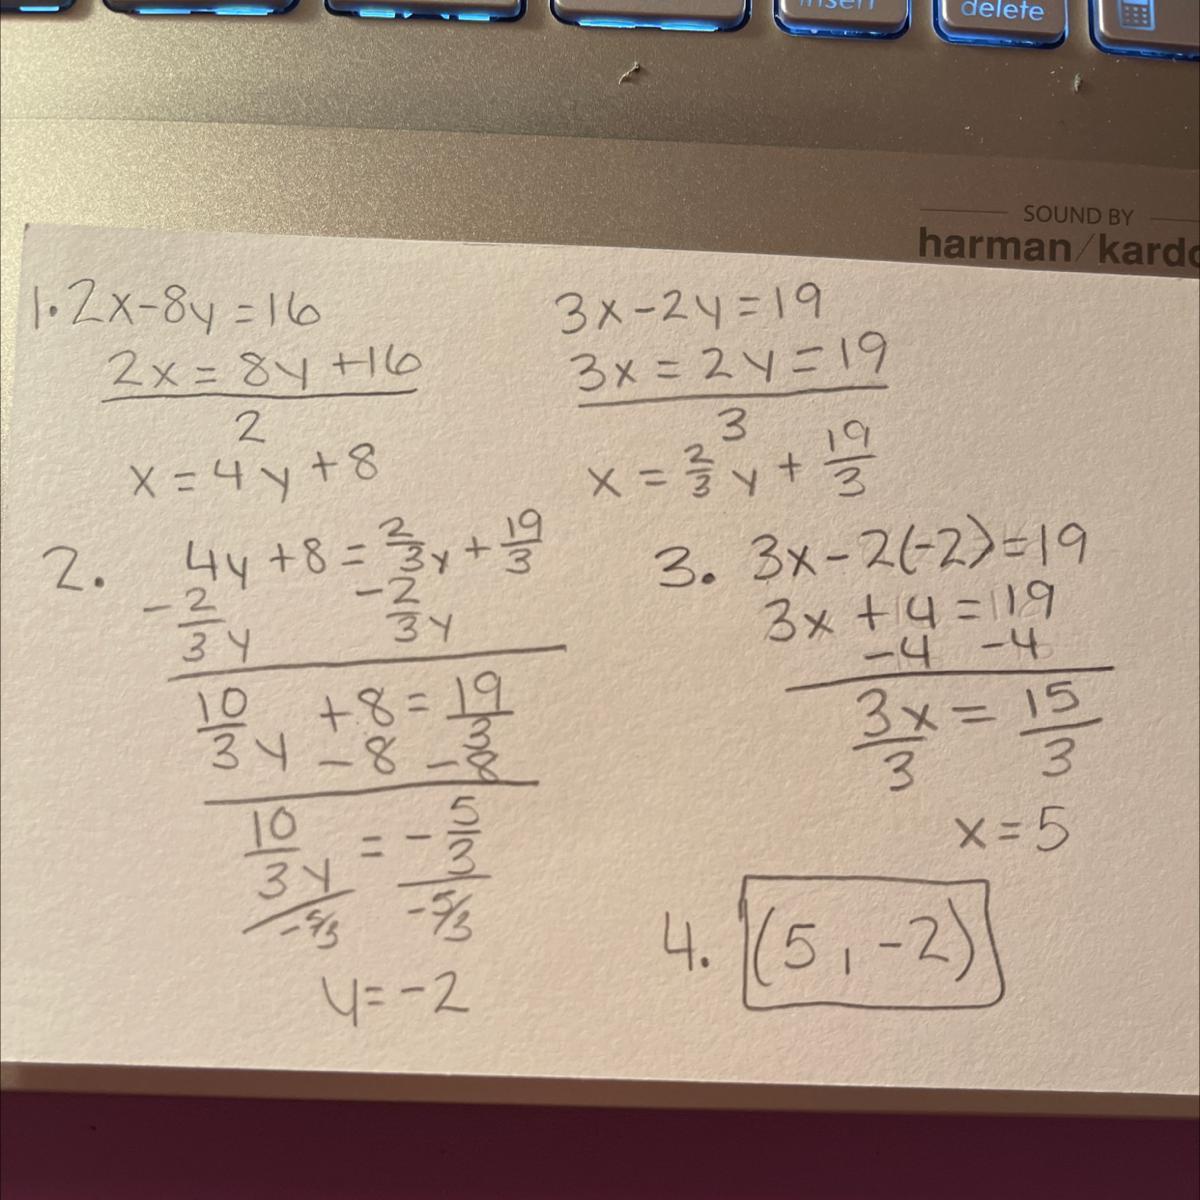 insert
delete
SOUND BY
harman/kardo
1. 2x-8y=16
2x = 8y +16
2
x = 4y +8
3x-2y=19
3x = 2y = 19
3
x = 2/3 y + 19/3
2. 4y +8 = 2/3 y + 19/3
- 2/3 y - 2/3 y
10/3 y +8 = 19/3
-8 -8
10/3 y = - 5/3
-5/3 -5/3
y = -2
3. 3x - 2(-2) = 19
3x + 4 = 19
-4 -4
3x/3 = 15/3
x = 5
4. (5, -2)